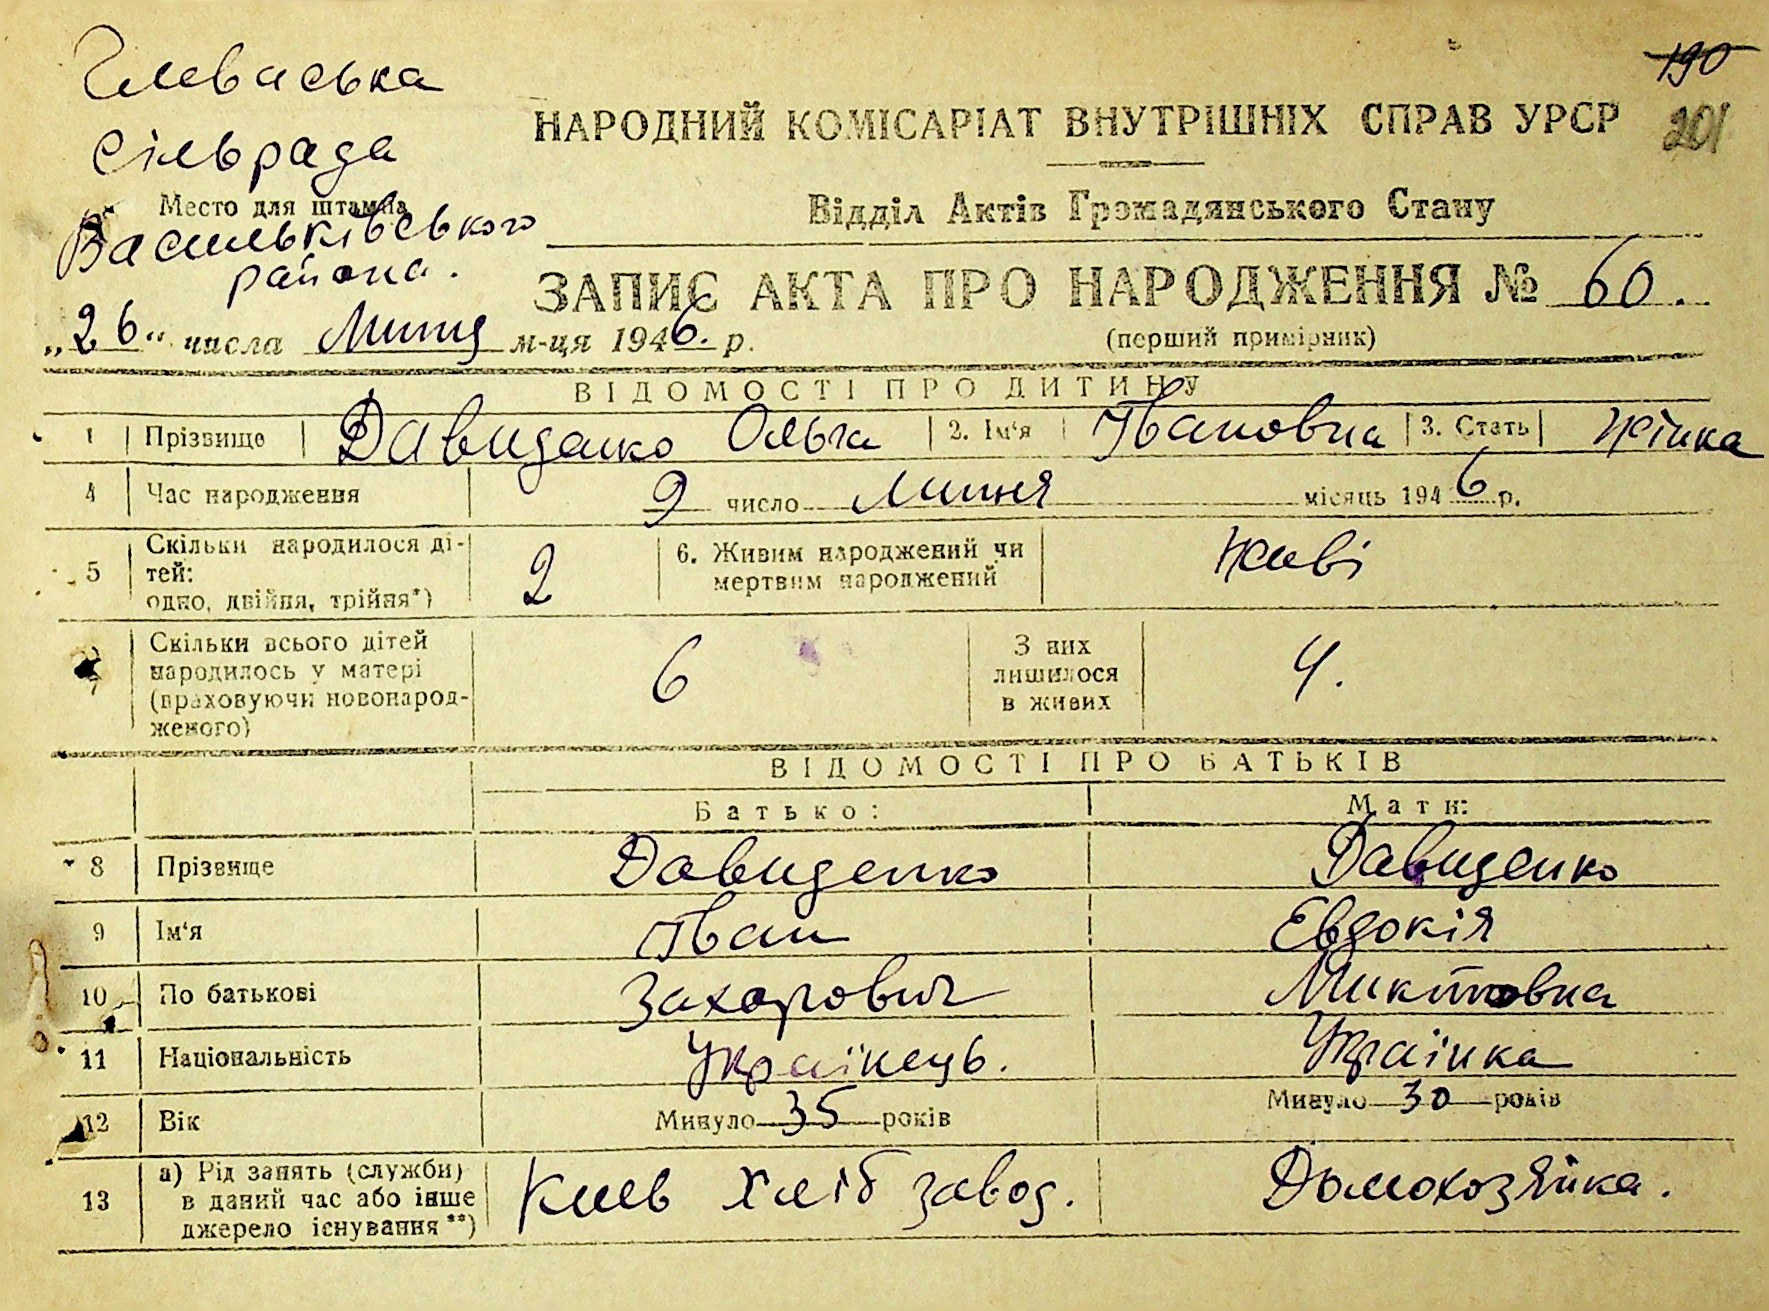 Глеваська
сільрада
Место для штампа
Васильківського
района.
190
201
НАРОДНИЙ КОМІСАРІАТ ВНУТРІШНІХ СПРАВ УРСР
Відділ Актів Громадянського Стану
ЗАПИС АКТА ПРО НАРОДЖЕННЯ № 60.
(перший примірник)
„26“ числа Липня м-ця 1946. р.
ВІДОМОСТІ ПРО ДИТИНУ
1 Прізвище Давиденко Ольга 2. Ім'я Івановна 3. Стать жінка
4 Час народження 9 число Липня місяць 1946 р.
5 Скільки народилося дітей: одно, двійня, трійня*) 2 6. Живим народжений чи мертвим народжений живі
Скільки всього дітей народилось у матері (враховуючи новонародженого) 6 З них лишилося в живих 4.
ВІДОМОСТІ ПРО БАТЬКІВ
Батько: Мати:
8 Прізвище Давиденко Давиденко
9 Ім'я Іван Евдокія
10 По батькові Захарович
11 Національність Українець. Українка
12 Вік Минуло 35 років Минуло 30 років
13 а) Рід занять (служби) в даний час або інше джерело існування**) Киев Хліб завод. Домохозяйка.